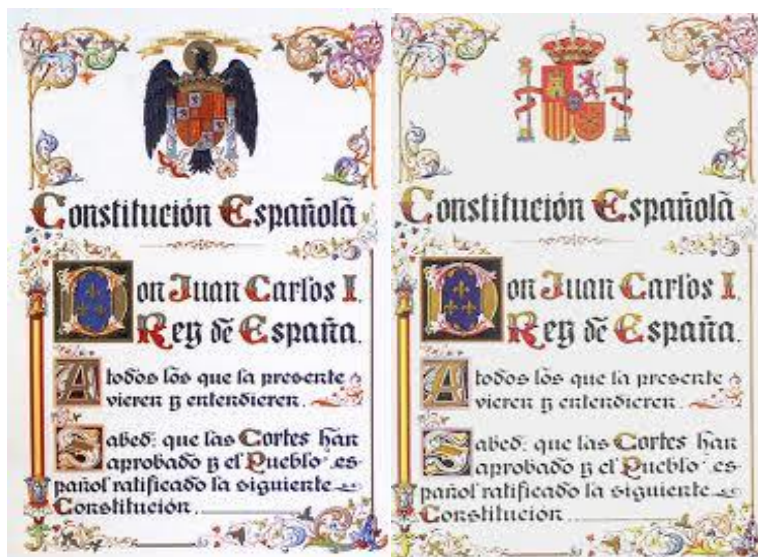 Constitución Española
Don Juan Carlos I,
Rey de España.
A todos los que la presente
vieren y entendieren.
Sabed: que las Cortes han
aprobado y el Pueblo es-
pañol ratificado la siguiente
Constitución.
Constitución Española
Don Juan Carlos I,
Rey de España.
A todos los que la presente
vieren y entendieren.
Sabed: que las Cortes han
aprobado y el Pueblo es-
pañol ratificado la siguiente
Constitución.